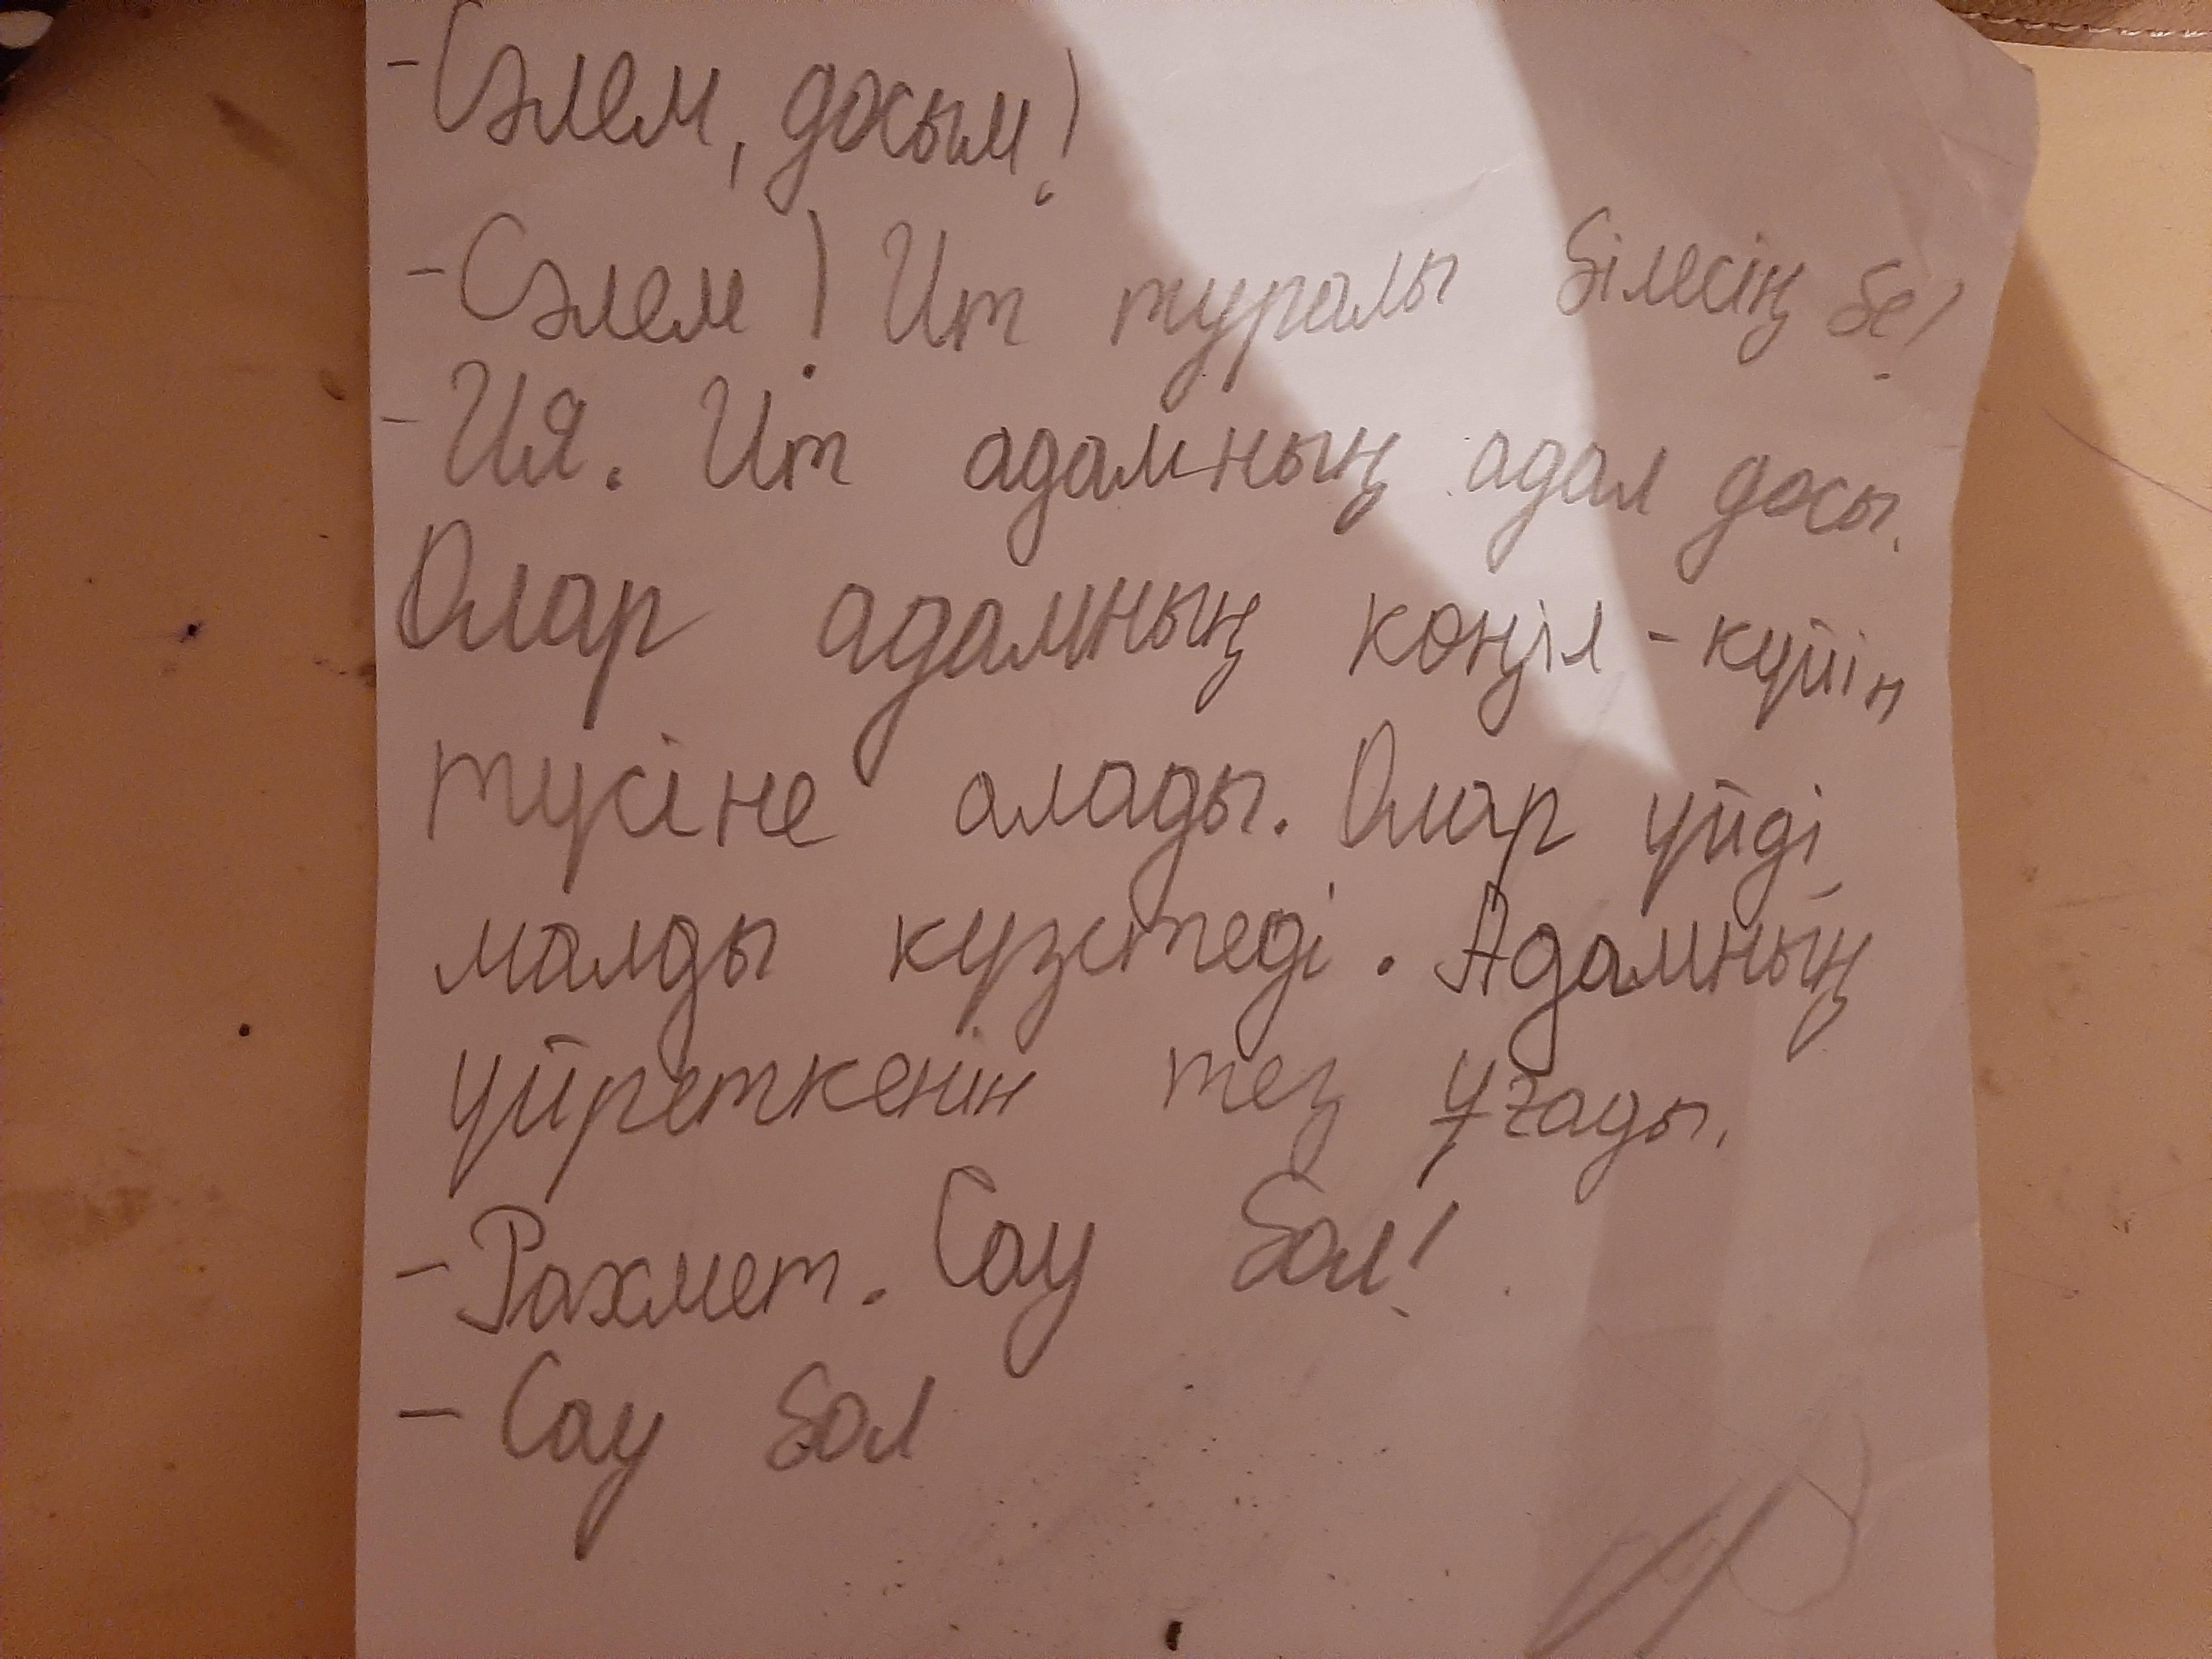 -Сәлем, досым!
-Сәлем! Ит туралы білесің бе!
-Ия. Ит адамның адал досы.
Олар адамның көңіл-күйін
түсіне алады. Олар үйді
малды күзетеді. Адамның
үйреткенін тез ұғады.
-Рахмет. Сау бол!
-Сау бол